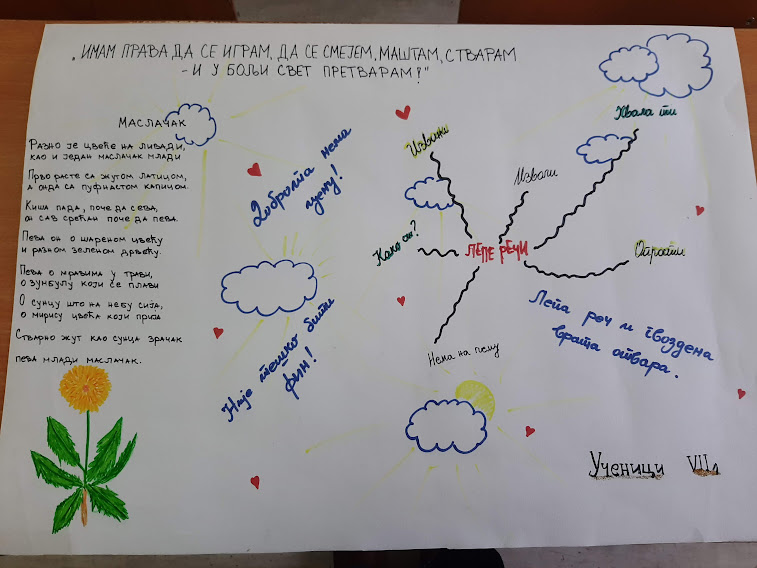 „ИМАМ ПРАВА ДА СЕ ИГРАМ, ДА СЕ СМЕЈЕМ, МАШТАМ, СТВАРАМ
- И У БОЉИ СВЕТ ПРЕТВАРАМ!"
МАСЛАЧАК
Разно је цвеће на ливади,
као и један маслачак млади
Прво расте са жутом латицом,
а онда са пуфнастом капицом.
Киша пада, поче да сева,
он сав срећан поче да пева.
Пева он о шареном цвећу
и разном зеленом дрвећу.
Пева о мравима у трави,
о зумбулу који се плави
О сунцу што на небу сија,
о мирису цвећа који прија
Стварно жут као сунца зрачак
пева млади маслачак.
Доброта нема
цену!
Није тешко бити
фин!
Извини
Изволи
Хвала ти
Како си?
ЛЕПЕ РЕЧИ
Опрости
Нема на чему
Лепа реч и гвоздена
врата отвара.
Ученици VII1